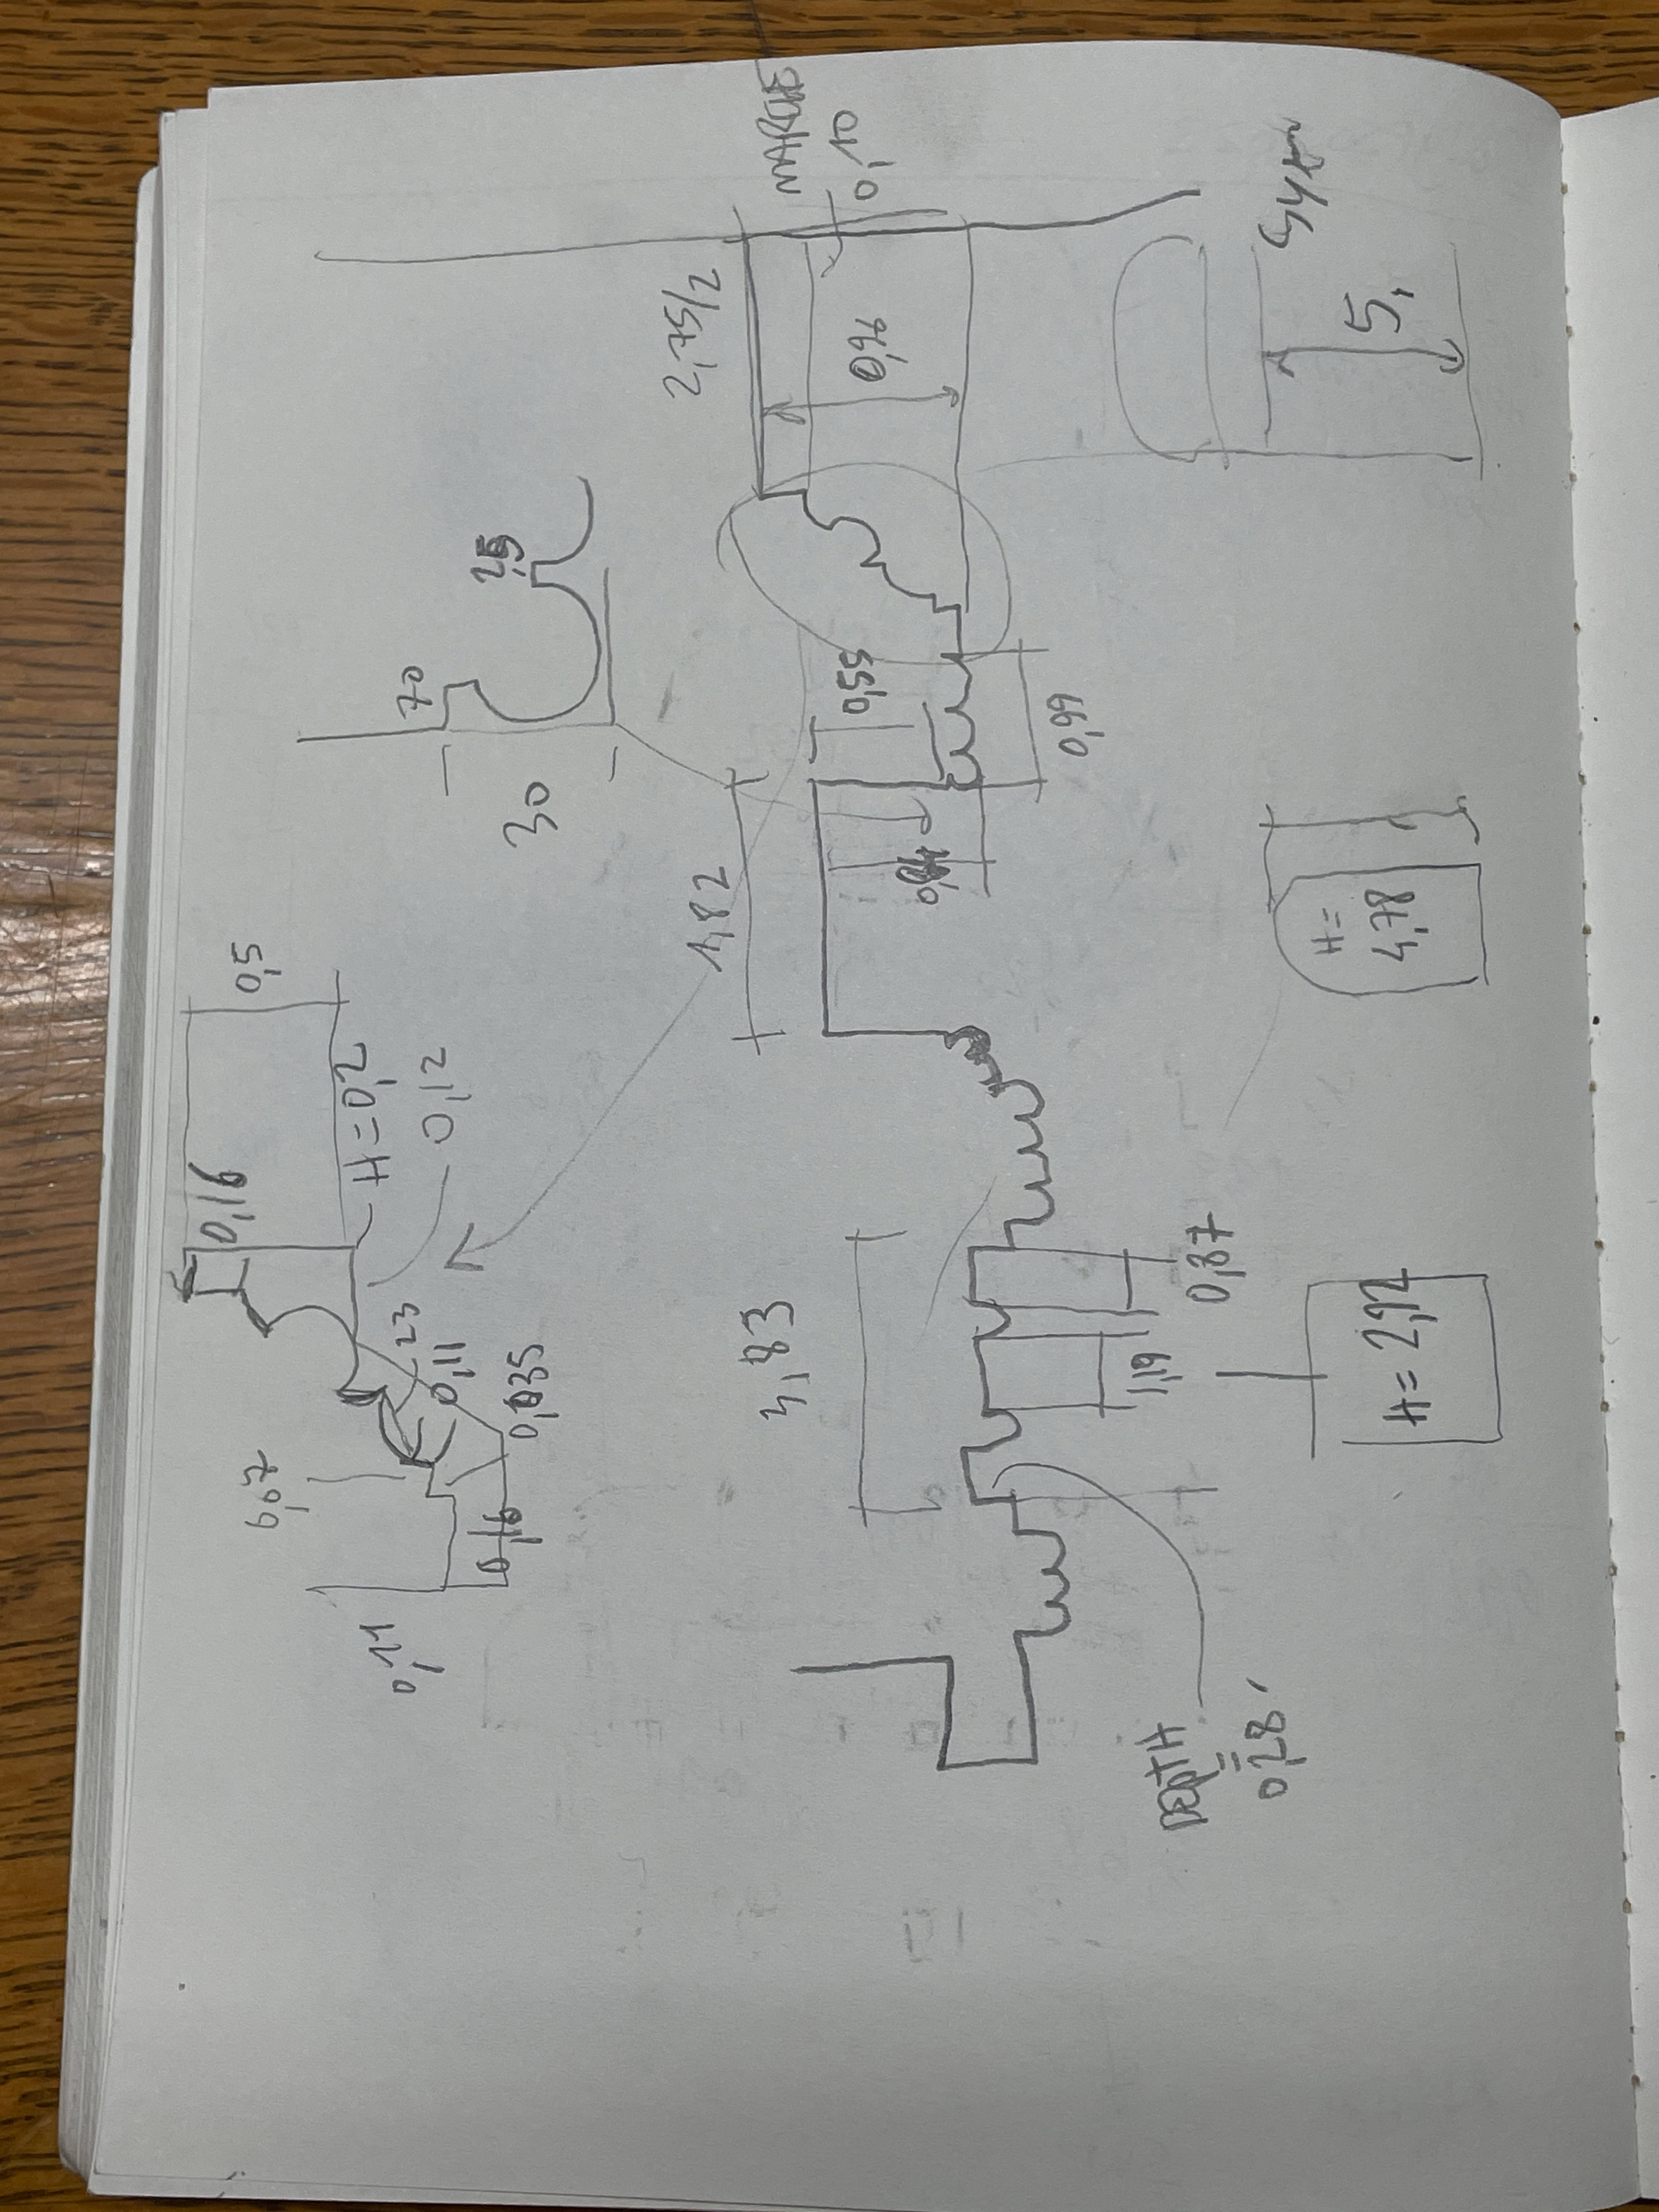 0,5
0,16
H=0,2
0,12
23
0,11
0,035
0,16
0,11
70
30
2,75/2
0,10
0,96
0,55
0,99
1,82
3,83
0,87
1,19
DEPTH
=
0,28
H=2,92
H=
4,78
5,